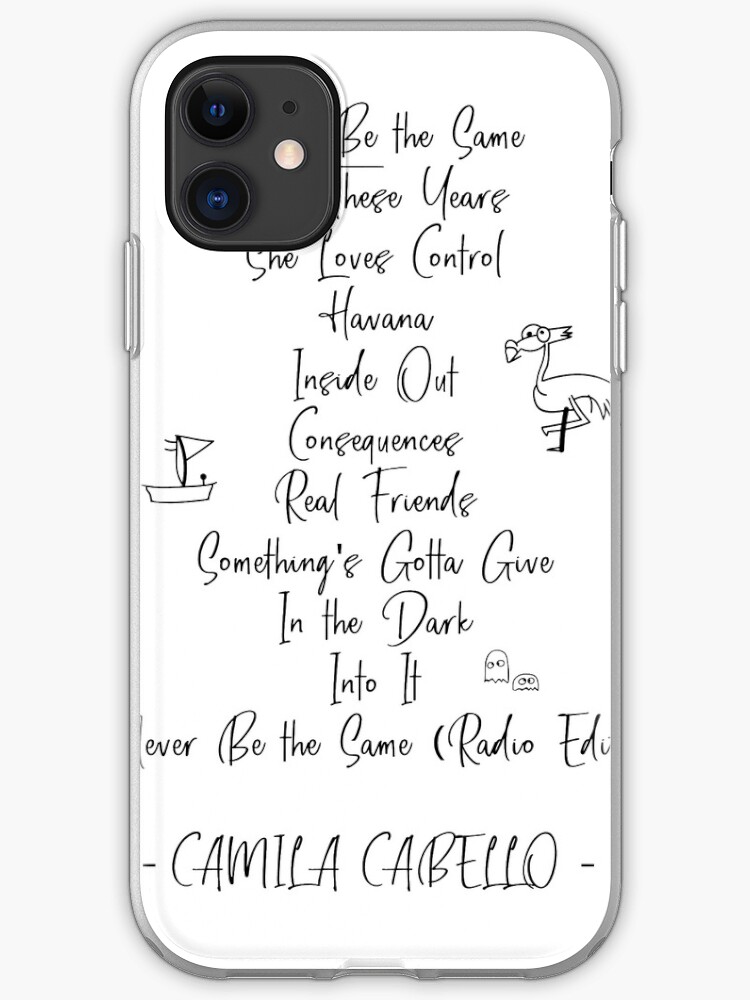 Be the Same
These Years
She Loves Control
Havana
Inside Out
Consequences
Real Friends
Something's Gotta Give
In the Dark
Into It
Never Be the Same (Radio Edit
- CAMILA CABELLO -